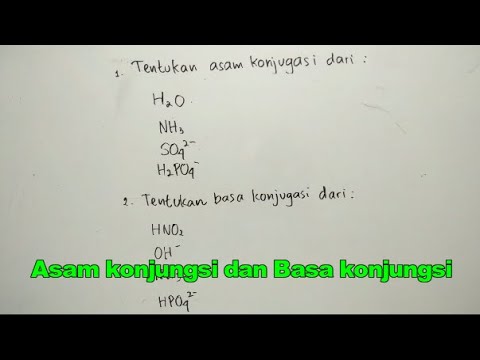 1. Tentukan asam konjugasi dari :
H₂O
NH₃
SO₄²⁻
H₂PO₄⁻
2. Tentukan basa konjugasi dari :
HNO₂
OH⁻
Asam konjungsi dan Basa konjungsi
HPO₄²⁻